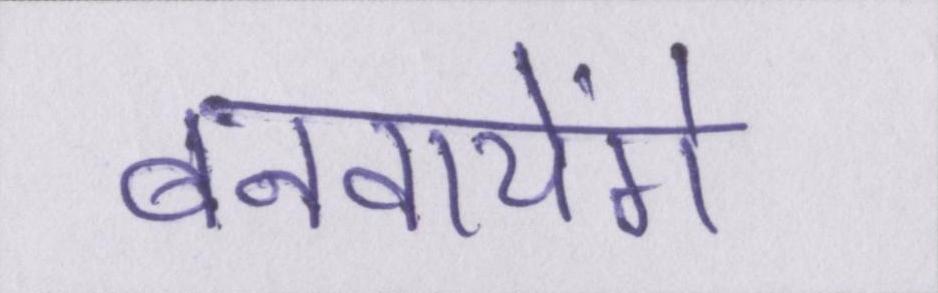 बनवायेंगे